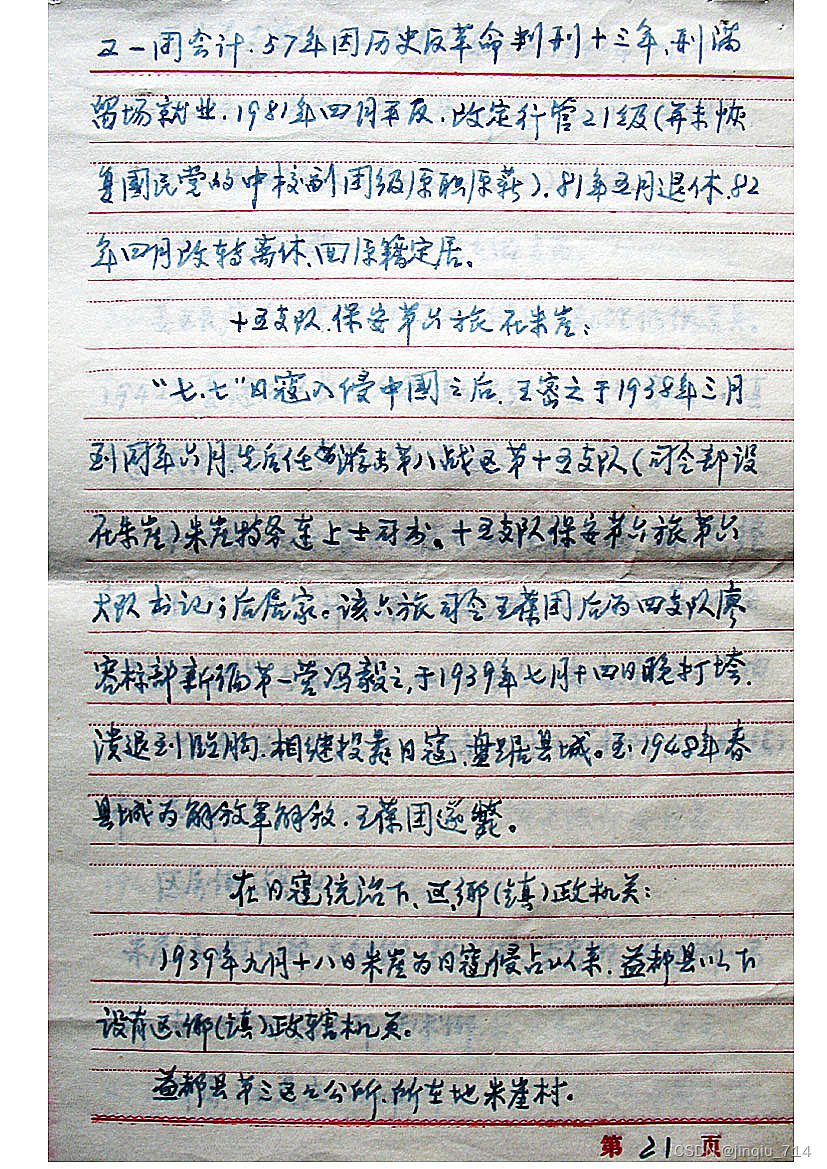 又一团会计.57年因历史反革命判刑十三年、刑满
留场就业.1981年四月平反.改定行管21级(并未恢
复國民党的中校副团级原职原薪).81年五月退休.82
年四月改转离休、回原籍定居。
十五支队.保安第六旅在朱崖:
"七.七"日寇入侵中國之后.王密之于1938年三月
到同年六月.先后任游击第八战区第十五支队(司令部设
在朱崖)朱崖特务连上士司书。十五支队保安第六旅第六
大队书记,后居家。该六旅司令王葆团后为四支队廖
容标部新编第一营冯毅之,于1939年七月十四日晚打垮.
溃退到临朐.相继投靠日寇、盘踞县城。至1948年春
县城为解放军解放.王葆团遂毙。
在日寇统治下、区、乡(镇)政机关:
1939年九月十八日朱崖为日寇侵占以来.益都县以下
设有区、乡(镇)政辖机关。
益都县第三区公所.所在地朱崖村。
第 21 页
CSDN @jinqiu_714